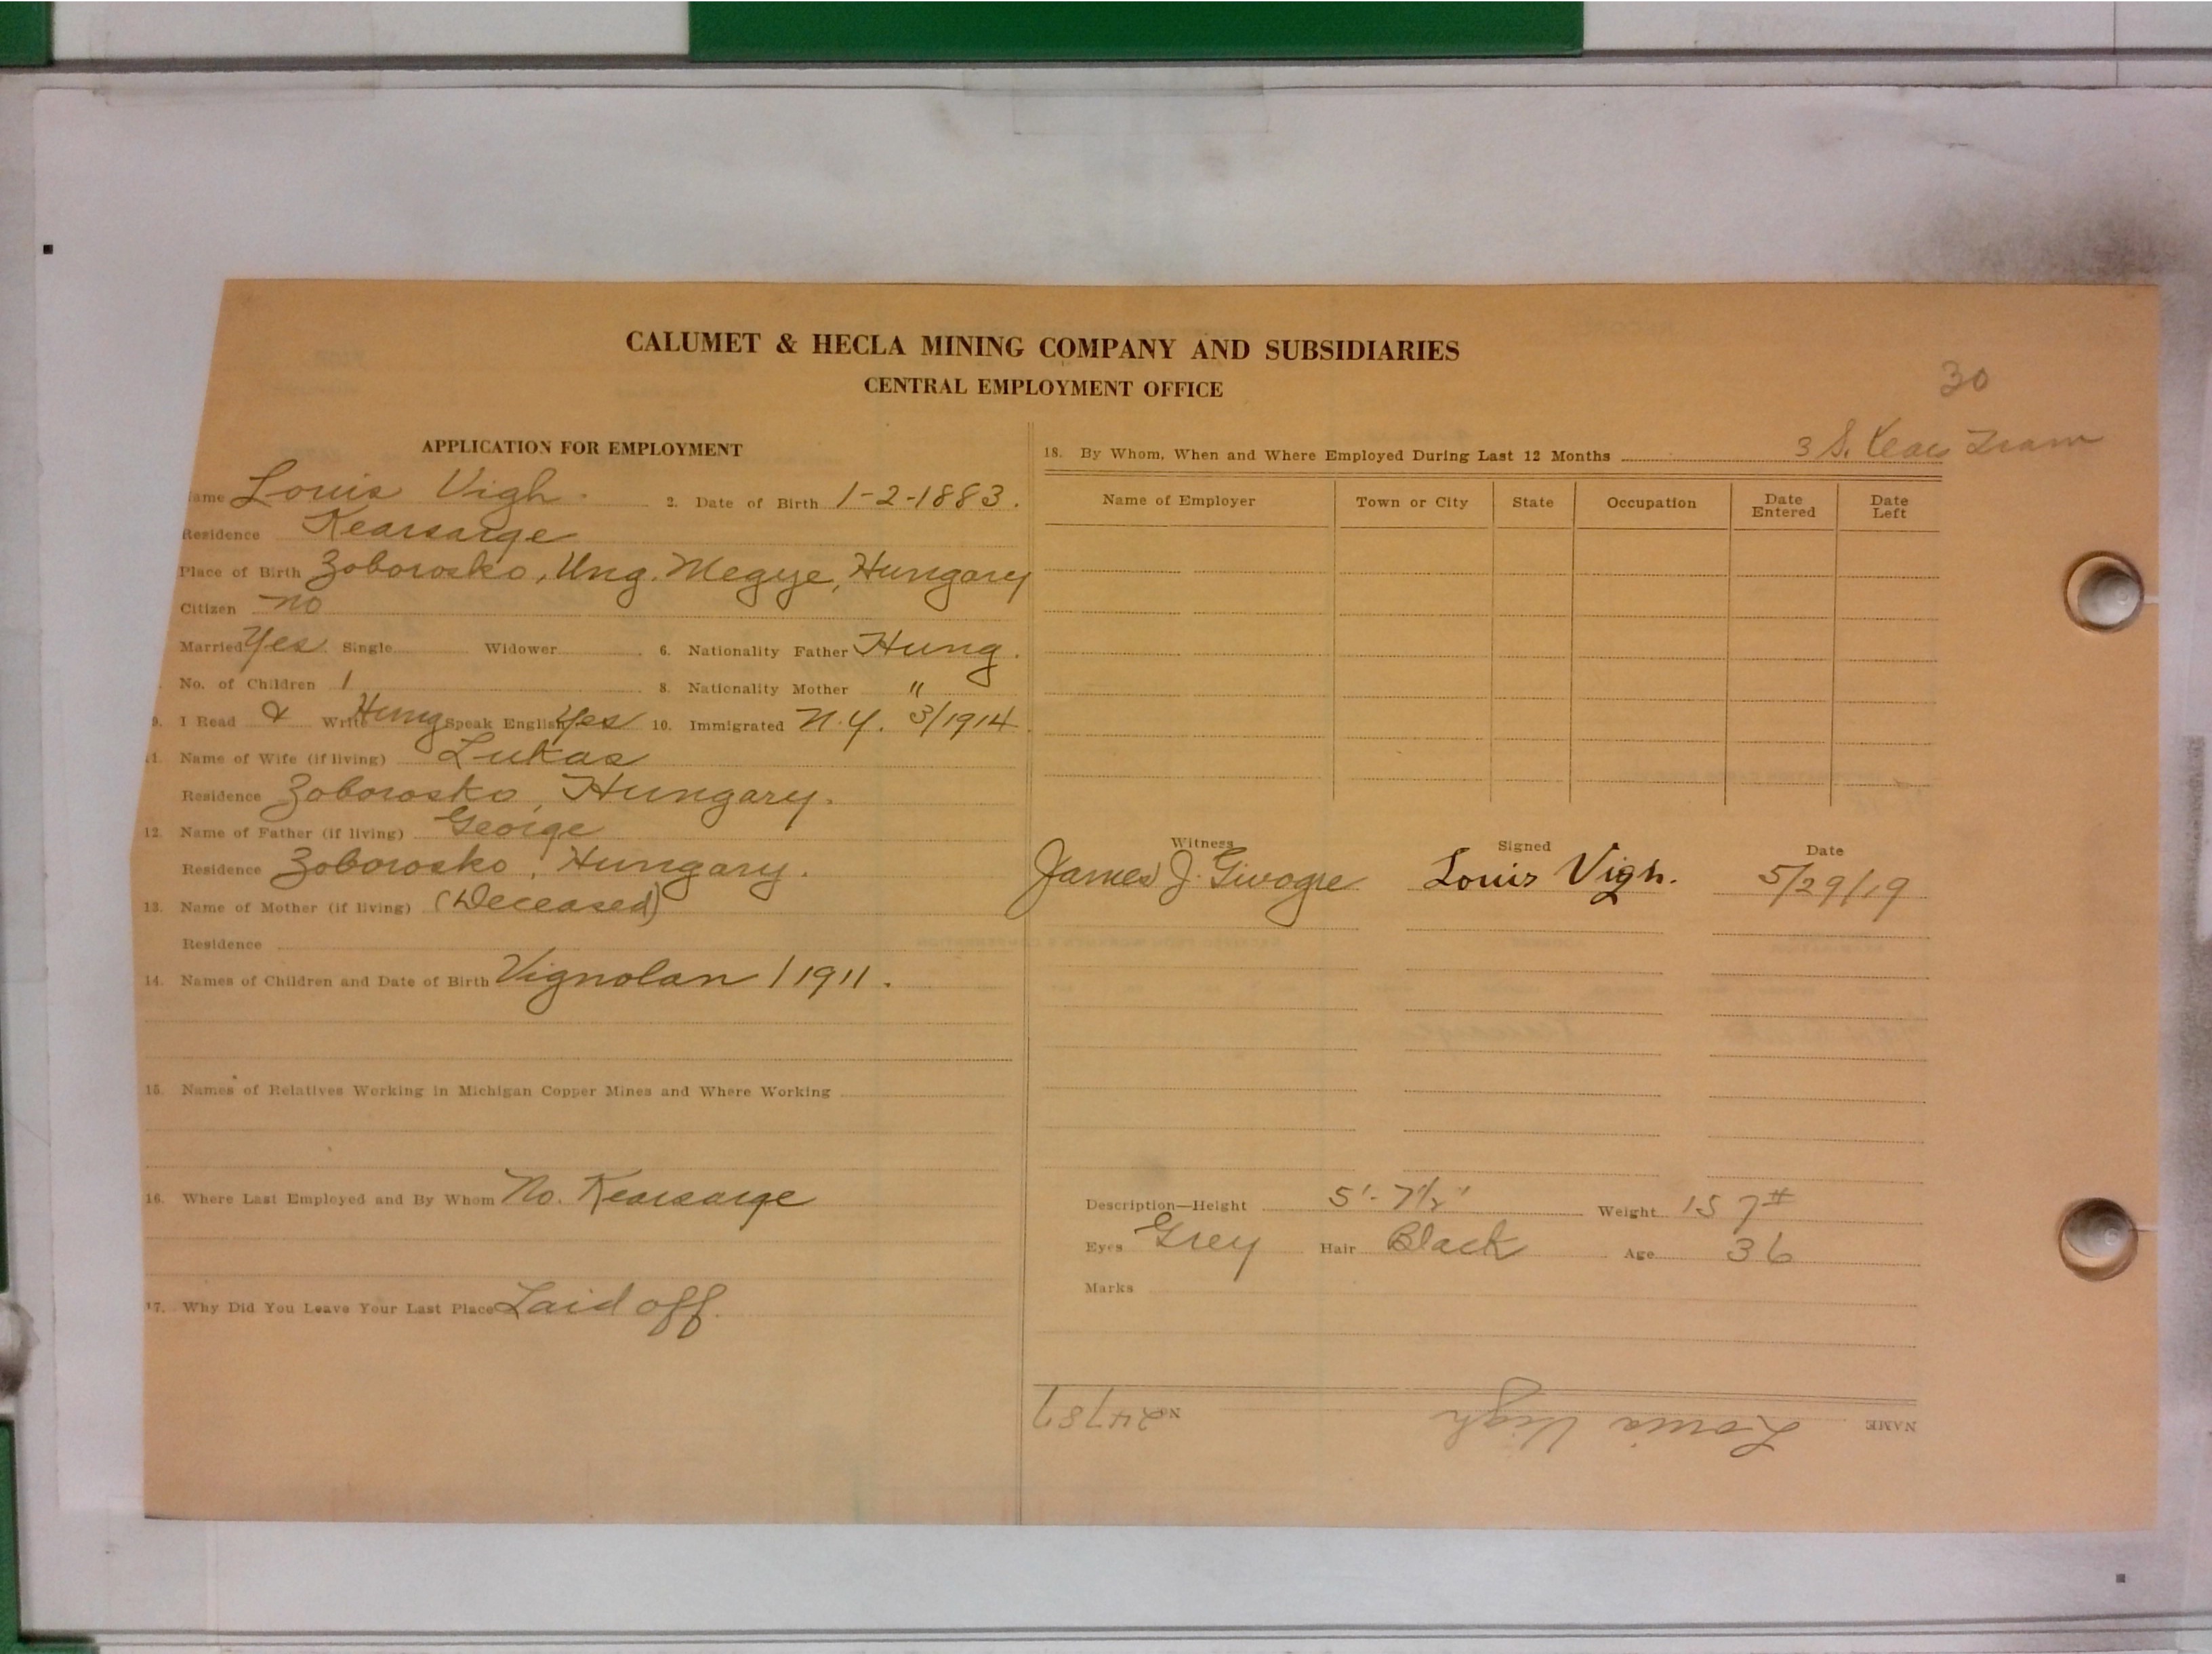 CALUMET & HECLA MINING COMPANY AND SUBSIDIARIES
CENTRAL EMPLOYMENT OFFICE
30
APPLICATION FOR EMPLOYMENT
ame Louis Vigh. 2. Date of Birth 1-2-1883.
Residence Kearsarge
Place of Birth Zoborosko, Ung. Megye, Hungary
Citizen no
Married Yes. Single Widower 6. Nationality Father Hung.
No. of Children 1 8. Nationality Mother "
9. I Read & Write Hung Speak English Yes 10. Immigrated N.Y. 3/1914
1. Name of Wife (if living) Lukas
Residence Zoborosko, Hungary.
12. Name of Father (if living) George
Residence Zoborosko, Hungary.
13. Name of Mother (if living) (Deceased)
Residence
14. Names of Children and Date of Birth Vignolan 1 1911.
15. Names of Relatives Working in Michigan Copper Mines and Where Working
16. Where Last Employed and By Whom No. Kearsarge
17. Why Did You Leave Your Last Place Laid off.
3 S. Kears Tram
18. By Whom, When and Where Employed During Last 12 Months
Name of Employer Town or City State Occupation Date Entered Date Left
Witness Signed Date
James J. Louis Vigh. 5/29/19
Description—Height 5'-7½" Weight 157#
Eyes Grey Hair Black Age 36
Marks
NAME Louis Vigh No. 24787